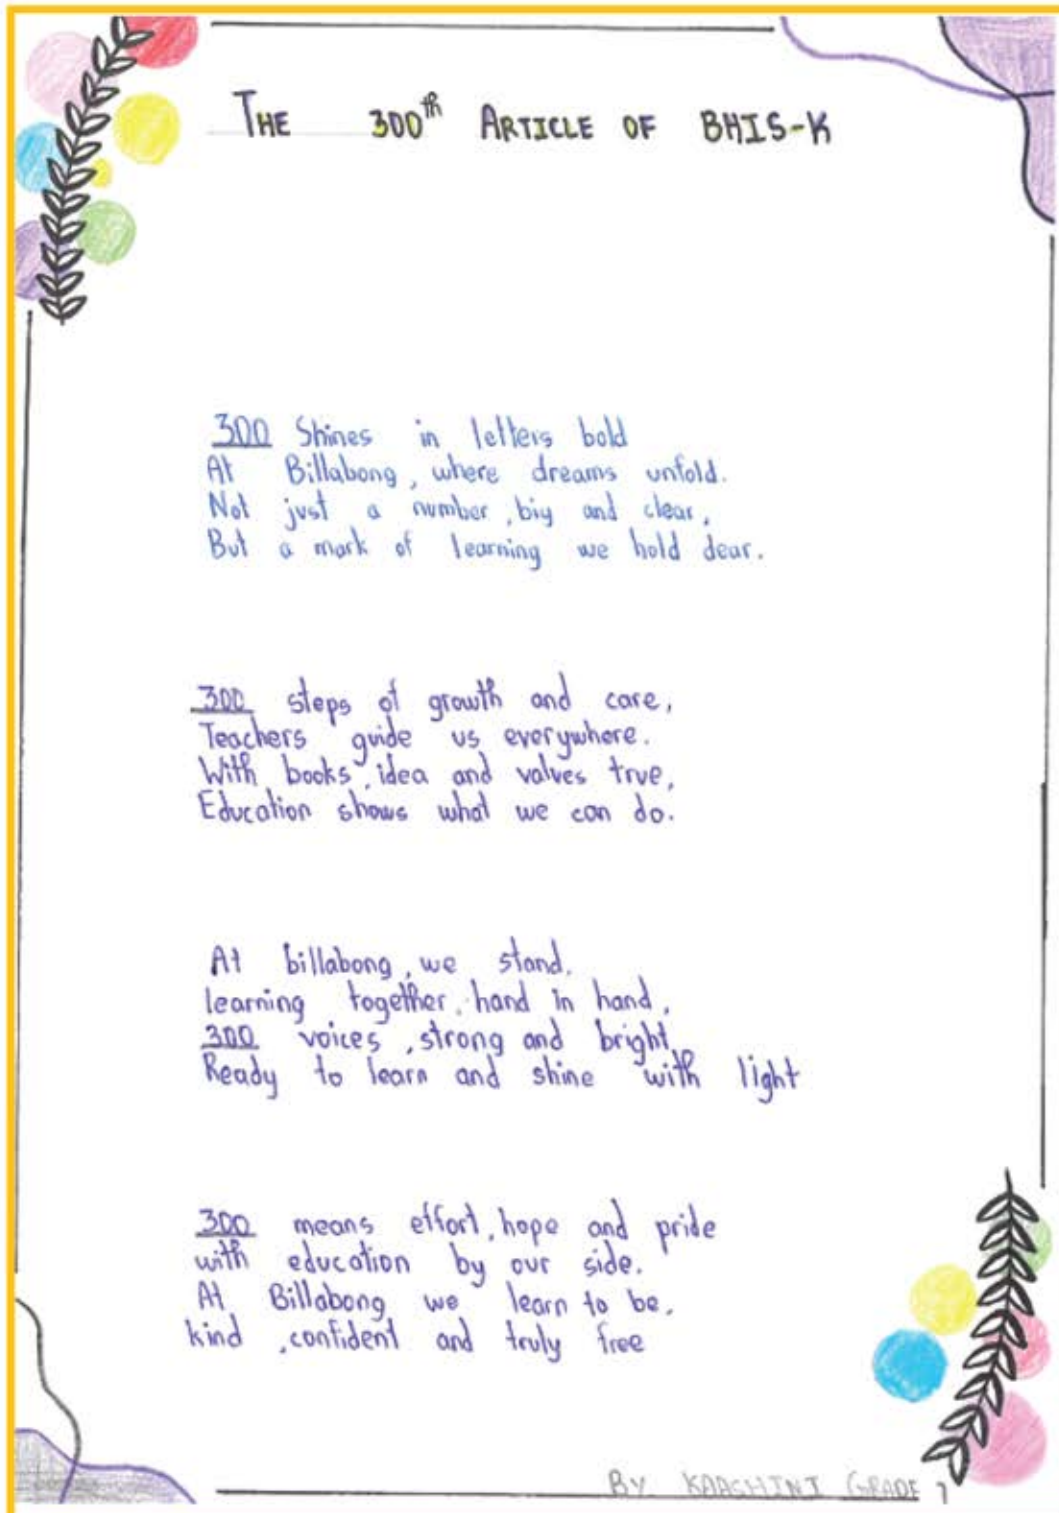 THE 300th ARTICLE OF BHIS-K
300 Shines in letters bold
At Billabong, where dreams unfold.
Not just a number, big and clear,
But a mark of learning we hold dear.
300 steps of growth and care,
Teachers guide us everywhere.
With books, idea and values true,
Education shows what we can do.
At billabong, we stand,
learning together, hand in hand,
300 voices, strong and bright,
Ready to learn and shine with light
300 means effort, hope and pride
with education by our side.
At Billabong we learn to be,
kind, confident and truly free
BY KAASHINI GRADE 7